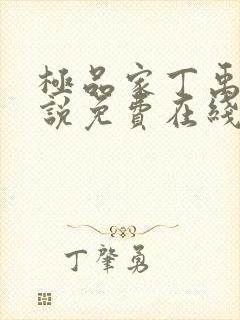 極品家丁禹
說免費在綫
丁肇勇